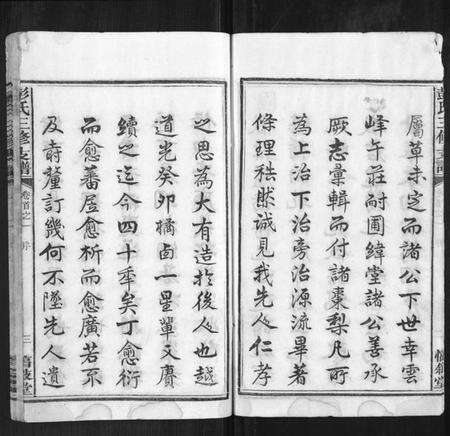 彭氏三修支譜
屬草未定而諸公下世幸雲
峰午莊耐圃緯堂諸公善承
厥志彙輯而付諸棗梨凡所
為上治下治旁治源流畢著
條理秩然誠見我先人仁孝
之思為大有造於後人也越
道光癸卯橘卤一星軰又賡
續之迄今四十年矣丁愈衍
而愈蕃居愈析而愈廣若不
及時釐訂幾何不墜先人遺
彭氏三修支譜
卷首之一
序
三